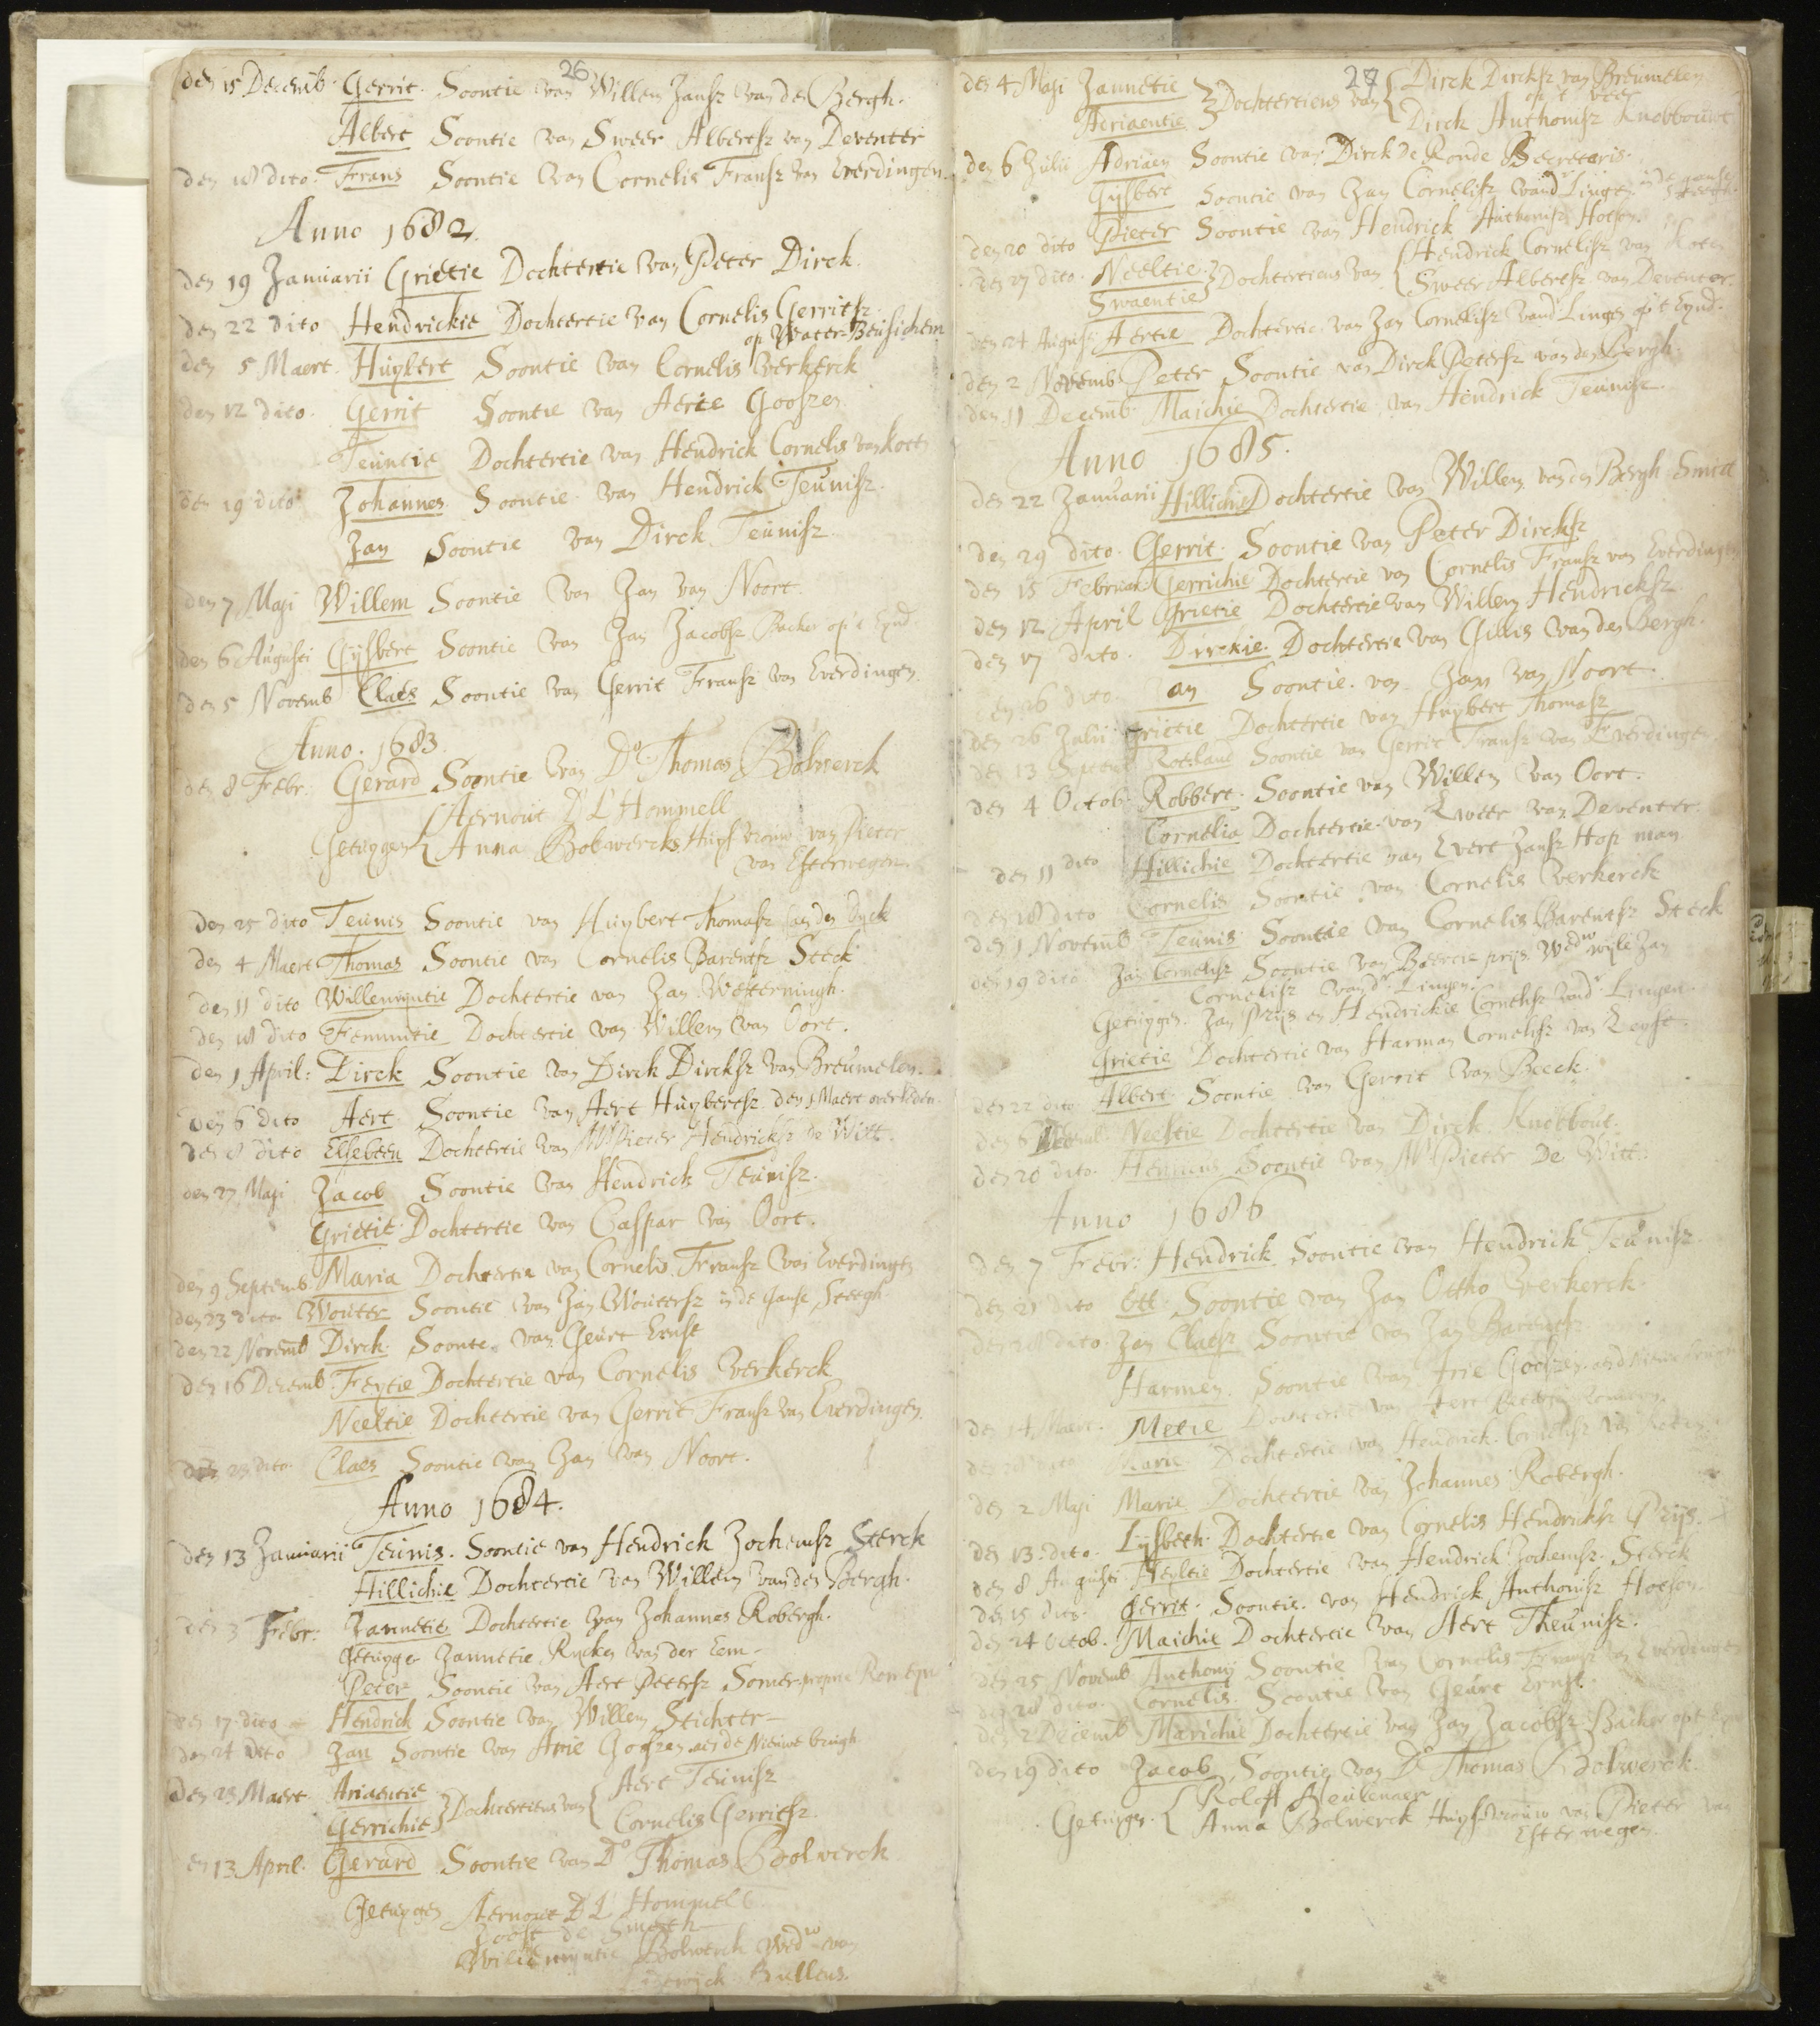 26
den 15 Decemb. Gerrit. Soontie van Willem Jansz van den Bergh.
Albert Soontie van Sweer Albertsz van Deventer
den 18 dito. Frans Soontie van Cornelis Fransz van Everdingen.
Anno 1682.
den 19 Januarii Grietie Dochtertie van Peter Dirck.
den 22 dito Hendrickie Dochtertie van Cornelis Gerritsz.
op Water-Beusichem
den 5 Maert. Huybert Soontie van Cornelis Verkerck
den 12 dito. Gerrit Soontie van Aerie Gooszen
Teuntie Dochtertie van Hendrick Cornelis van Koten
den 19 dito Johannes Soontie van Hendrick Teunisz.
Jan Soontie van Dirck Teunisz.
den 7 Maji Willem Soontie van Jan van Noort.
den 6 Augusti Gijsbert Soontie van Jan Jacobsz Backer op 't Eynd.
den 5 Novemb Claes Soontie van Gerrit Fransz van Everdingen.
Anno. 1683.
den 8 Febr. Gerard Soontie van Do Thomas Bolwerck
Aernout D' L'Hommell
Getuygen Anna Bolwercks Huysvrouw van Pieter
van Esterwegen.
den 25 dito Teunis Soontie van Huybert Thomasz aen den Dyck
den 4 Maert Thomas Soontie van Cornelis Barentsz Steck
den 11 dito Willemyntie Dochtertie van Jan Westerningh.
den 18 dito Femmitie Dochtertie van Willem van Oort.
den 1 April: Dirck Soontie van Dirck Dircksz van Breumelen.
den 6 dito Aert. Soontie van Aert Huybertsz. den 1 Maert overleden.
den 8 dito Elsebeen Dochtertie van Mr Pieter Hendricksz de Witt.
den 27 Maji Jacob Soontie van Hendrick Teunisz.
Grietie Dochtertie van Caspar van Oort.
den 9 Septemb. Maria Dochtertie van Cornelis Fransz van Everdingen
den 23 dito Wouter Soontie van Jan Woutersz in de Ganse Steegh.
den 22 Novemb Dirck Soonte. van Geurt Ernst
den 16 Decemb Feytie Dochtertie van Cornelis Verkerck
Neeltie Dochtertie van Gerrit Fransz van Everdingen.
den 23 dito. Claes Soontie van Jan van Noort.
Anno 1684.
den 13 Januarii Teunis. Soontie van Hendrick Jochemsz Sterck
Hillichie Dochtertie van Willem van den Bergh.
den 3 Febr: Jannetie Dochtertie van Johannes Robergh.
Getuyge Jannetie Ryckes van der Eem.
Peter Soontie van Aert Petersz Somer
den 17 dito Hendrick Soontie van Willem Stichter
den 24 dito Jan Soontie van Arie Goosen aen de Nieuwe brugh
den 23 Maert. Ariaentie Aert Teunisz
Gerrichie Dochterties van Cornelis Gerritsz.
den 13 April. Gerard Soontie van Do Thomas Bolwerck
Getuygen Aernout D L' Hommell
Joost de Smeth
Willemyntie Bolwerck Wedw van
Bullens.
27
den 4 Maji Jannetie Dirck Dircksz van Breumelen
Dochtertiens van op 't veer
Aeriaentie Dirck Anthonisz Knobbouwt
den 6 Julii Adriaen Soontie van Dirck De Ronde Secretaris.
Gijsbert Soontie van Jan Cornelisz vand Lingen in de ganse steegh.
den 20 dito Pieter Soontie van Hendrick Anthonisz Hoefen.
den 27 dito. Neeltie Hendrick Cornelisz van Koten
Swaentie Dochtertiens van Sweer Albertsz van Deventer.
den 24 August: Aertie Dochtertie van Jan Cornelisz vand Lingen op 't Eynd.
den 2 Novemb Peter Soontie van Dirck Petersz van den Bergh.
den 11 Decemb Maichie Dochtertie van Hendrick Teunisz.
Anno 1685.
den 22 Januarii Hillichie Dochtertie van Willem van den Bergh Smitt
den 29 dito. Gerrit. Soontie van Peter Dircksz
den 15 Februar. Gerrichie Dochtertie van Cornelis Fransz van Everdingen
den 12 April Grietie Dochtertie van Willem Hendricksz.
den 17 dito. Dirckie. Dochtertie van Gillis van den Bergh.
den 26 dito an Soontie. van Jan van Noort.
den 26 Julii Grietie Dochtertie van Huybert Thomasz
den 13 Septemb Roeland Soontie van Gerrit Fransz van Everdingen.
den 4 Octob. Robbert. Soontie van Willem van Oort.
Cornelia Dochtertie van Sweer van Deventer.
den 11 dito Hillichie Dochtertie van Evert Jansz Hopman
den 18 dito Cornelis Soontie van Cornelis Verkerck
den 1 Novemb Teunis Soontie van Cornelis Barentsz Steck
den 19 dito Jan Cornelisz Soontie van Beertie prys Wedw wijle Jan
Cornelisz vandr Lingen.
Getuygen. Jan Prys en Hendrickie Cornelisz vandr Lingen.
Grietie Dochtertie van Harman Cornelisz van Zeyst.
den 22 dito Albert. Soontie van Gerrit van Beeck.
den 6 Decemb. Neeltie Dochtertie van Dirck Knobbout.
den 20 dito. Henricus Soontie van Mr Pieter De Witt.
Anno 1686
den 7 Febr: Hendrick Soontie van Hendrick Teunisz.
den 21 dito Ott. Soontie van Jan Ottho Verkerck.
den 28 dito. Jan Claesz Soontie van Jan Barentsz
Harmen. Soontie van Arie Goosen aen d Nieuwe brugh
den 14 Maert. Metie Dochtertie van Aert Petersz
den 28 dito Marie Dochtertie van Hendrick Cornelisz van Koten
den 2 Maji Marie Dochtertie van Johannes Robergh.
den 13. dito. Lysbeth. Dochtertie van Cornelis Hendricksz Prys.
den 8 Augusti Neeltie Dochtertie van Hendrick Jochemsz. Sterck
den 15 dito. Gerrit. Soontie. van Hendrick Anthonisz Hoefen.
den 24 Octob. Maichie Dochtertie van Aert Theunisz.
den 25 Novemb Anthony Soontie van Cornelis Fransz van Everdingen
den 28 dito. Cornelis. Soontie van Geurt Ernst.
den 2 Decemb Marichie Dochtertie van Jan Jacobsz Backer op 't Eynd
den 19 dito Jacob Soontie van Do Thomas Bolwerck.
Roloff Meulenaer
Getuygen. Anna Bolwerck Huysvrouw van Pieter van
Esterwegen.